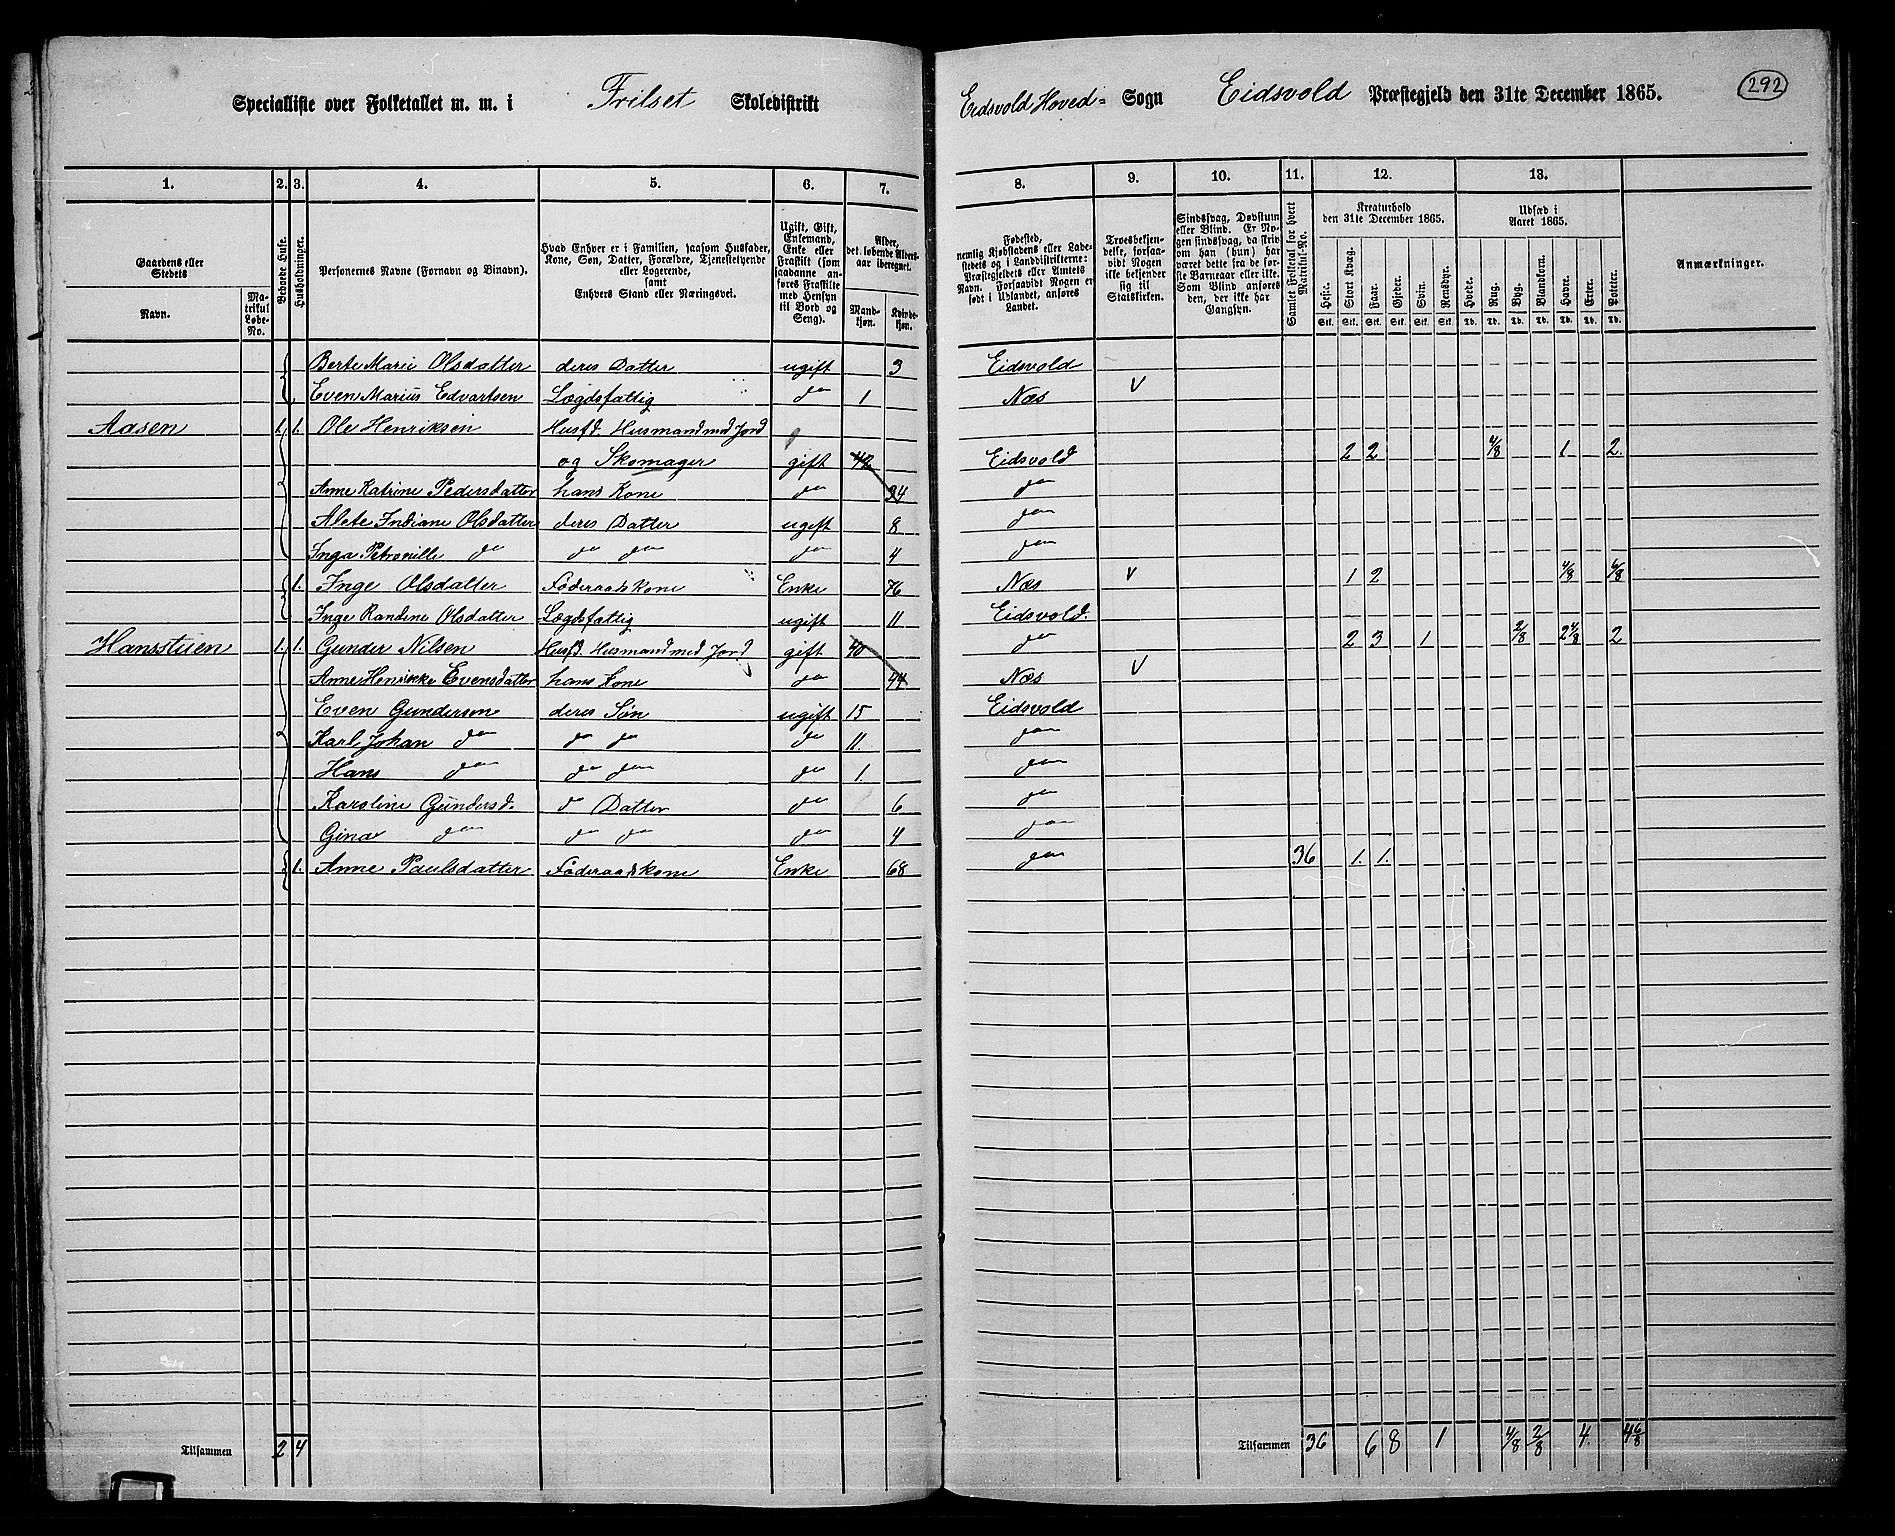 Specialliste over Folketallet m. m. i Frilset Skoledistrikt Eidsvold Hoved= Sogn Eidsvold Præstegjeld den 31te December 1865. 292
1. 2. 3. 4. 5. 6. 7. 8. 9. 10. 11. 12. 13.
Gaardens eller Stedets
Navn.
Matrikul Løbe-No.
Beboede Huse.
Husholdninger.
Personernes Navne (Fornavn og Binavn).
Hvad Enhver er i Familien, saasom Husfader, Kone, Søn, Datter, Forældre, Tjenestetyende eller Logerende, samt Enhvers Stand eller Næringsvei.
Ugift, Gift, Enkemand, Enke eller Fraskilt (som saadanne anføres Fraskilte med Hensyn til Bord og Seng).
Alder, det løbende Aldersaar iberegnet.
Mandkjøn.
Kvindekjøn.
Fødested, nemlig Kjøbstadens eller Ladestedets og i Landdistrikterne: Præstegjeldets eller Amtets Navn. Forsaavidt Nogen er født i Udlandet, anføres Landet.
Troesbekjendelse, forsaavidt Nogen ikke bekjender sig til Statskirken.
Sindssvag, Døvstum eller Blind. Er Nogen sindssvag, da skriv om han (hun) har været dette fra de første Barneaar eller ikke. Som Blind anføres den, der ikke har Gangsyn.
Samlet Folketal for hvert Matrikul-No.
Kreaturhold den 31te December 1865.
Heste. Stort Kvæg. Faar. Gjeder. Svin. Rensdyr.
Stk. Stk. Stk. Stk. Stk. Stk.
Udsæd i Aaret 1865.
Hvede. Rug. Byg. Blandkorn. Havre. Erter. Poteter.
Td. Td. Td. Td. Td. Td. Td.
Anmærkninger.
Berte Marie Olsdatter deres Datter ugift 3 Eidsvold
Even Marius Edvartsen Lægdsfattig do 1 Næs V
Aasen 1. 1. Ole Henriksen Husfd. Husmand med Jord
og Skomager gift 42 Eidsvold 2 2 4/8 1 2.
Anne Katrine Pedersdatter hans Kone do 34 do
Alete Indiane Olsdatter deres Datter ugift 8 do
Inga Petronille do do do do 4 do
1. Inge Olsdatter Føderaadskone Enke 76 Næs V 1 2 4/8 6/8
Inge Randine Olsdatter Lægdsfattig ugift 11 Eidsvold.
Hansstuen 1. 1. Gunder Nilsen Husfd. Husmand med Jord gift 40 do 2 3 1 2/8 2 4/8 2
Anne Henrikke Evensdatter hans Kone do 44 Næs V
Even Gundersen deres Søn ugift 15 Eidsvold
Karl Johan do do do do 11. do
Hans do do do do 1. do
Karoline Gundersd. do Datter do 6 do
Gina do do do do 4 do
1. Anne Paulsdatter Føderaadskone Enke 68 do 36 1. 1.
Tilsammen 2 4 Tilsammen 36 6 8 1 4/8 2/8 4. 4 6/8